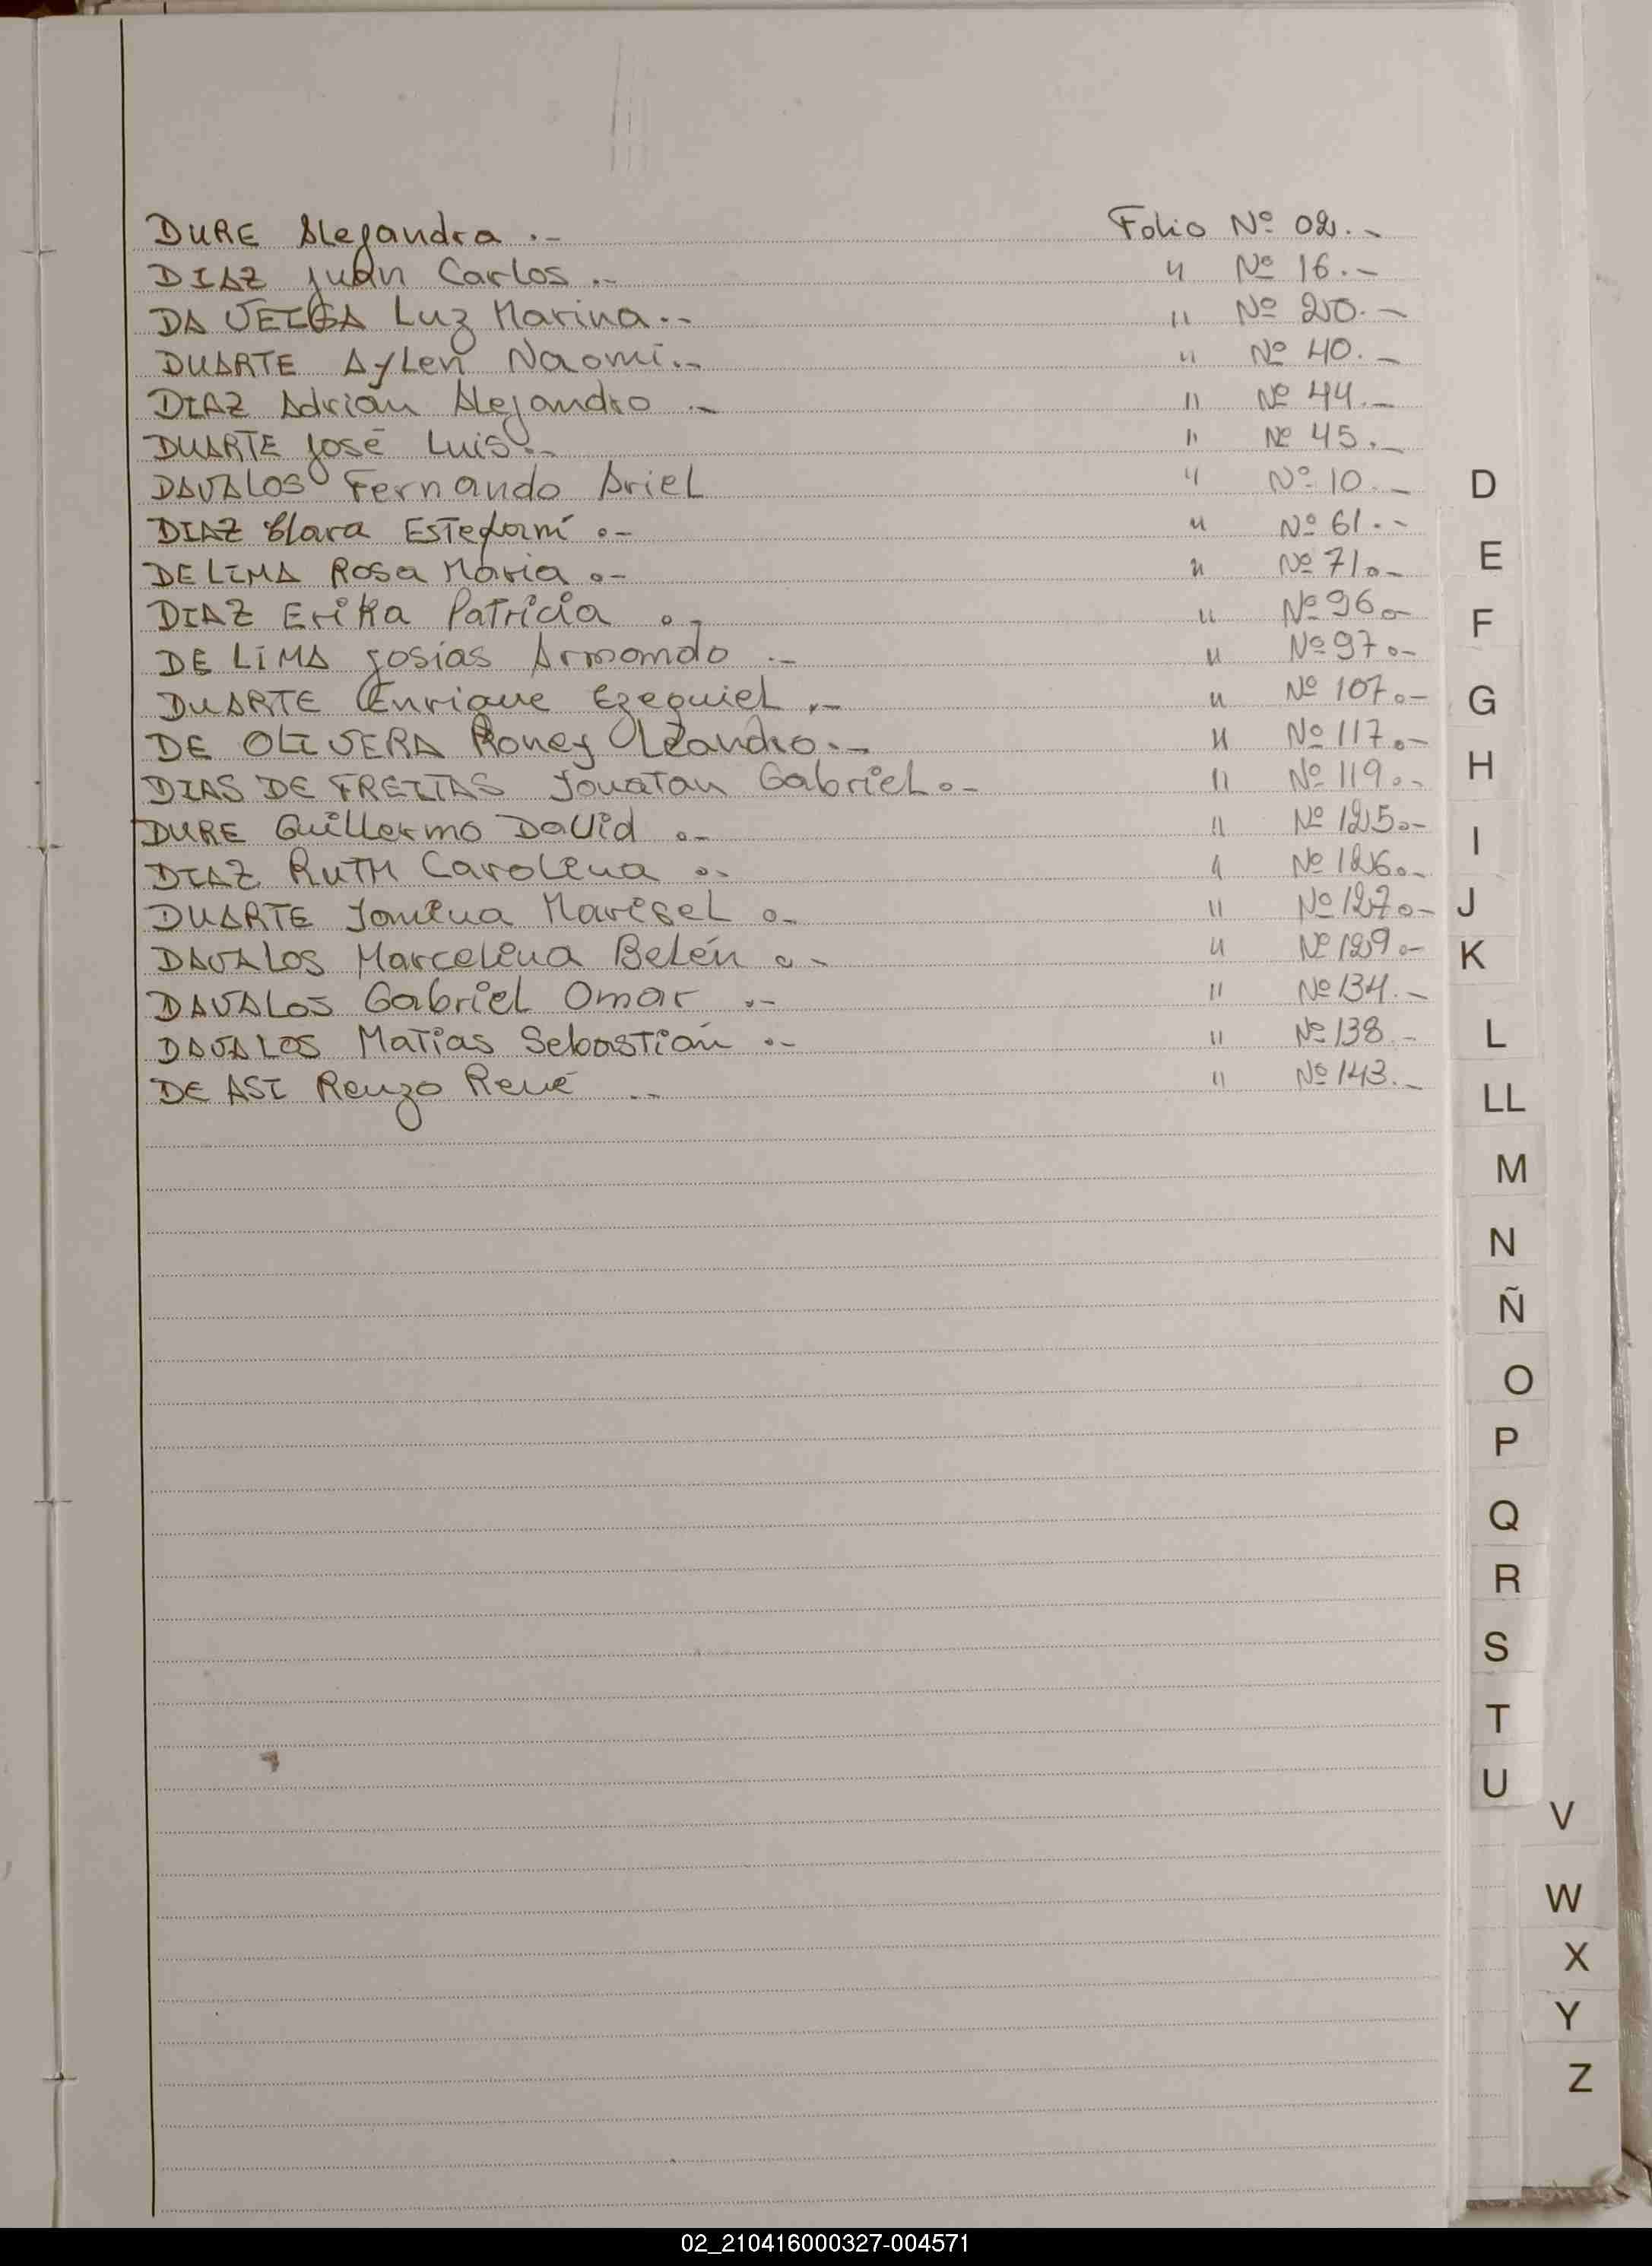 DURE Alejandra .- Folio Nº 02.-
DIAZ Juan Carlos .- " Nº 16.-
DA VEIGA Luz Marina.- " Nº 20.-
DUARTE Aylen Naomi.- " Nº 40.-
DIAZ Adrian Alejandro .- " Nº 44.-
DUARTE José Luis.- " Nº 45.-
DAVALOS Fernando Ariel " Nº 10.-
DIAZ Clara Estefaní .- " Nº 61.-
DE LIMA Rosa Maria .- " Nº 71.-
DIAZ Erika Patricia .- " Nº 96.-
DE LIMA Josías Armando .- " Nº 97.-
DUARTE Enrique Ezequiel .- " Nº 107.-
DE OLIVERA Roney Leandro.- " Nº 117.-
DIAS DE FREITAS Jonatan Gabriel.- " Nº 119.-
DURE Guillermo David .- " Nº 125.-
DIAZ RUTH Carolina .- " Nº 126.-
DUARTE Marisel .- " Nº 127.-
DAVALOS Marcelina Belén .- " Nº 129.-
DAVALOS Gabriel Omar .- " Nº 134.-
DAVALOS Matias Sebastián .- " Nº 138.-
DE ASI Renzo René .- " Nº 143.-
D
E
F
G
H
I
J
K
L
LL
M
N
Ñ
O
P
Q
R
S
T
U
V
W
X
Y
Z
02_210416000327-004571